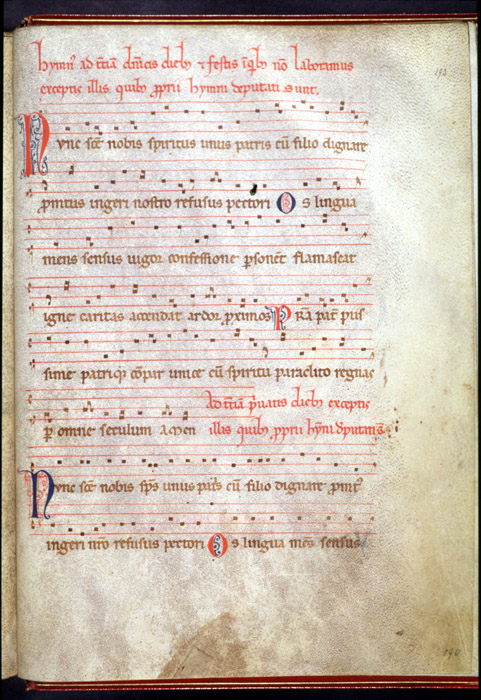 hymn᷒ ad t̄ciā dn̄icis dieb⁊ ⁊ festis īqb⁊ nō laboramus
exceptis illis quib⁊ ꝓprii hymni deputati sunt.
Nvnc sc̄e nobis spiritus unus patris cū filio dignare
promtus ingeri nostro refusus pectori Os lingua
mens sensus uigor confessione ꝑsonēt flamascat
igne caritas accendat ardor proximos PR̄A pat̄ piis
sime patriqꝫ cōpar unice cū spiritu paraclito regnās
Ad t̄ciā p̄uatis dieb⁊ exceptis
ꝑ omne seculum amen illis quib⁊ ꝓprii hȳni deputati s̄
Nvnc sc̄e nobis sp̄s unus pat̄s cū filio dignare ꝓmt᷒
ingeri nr̄o refusus pectori Os lingua mēs sensus
190